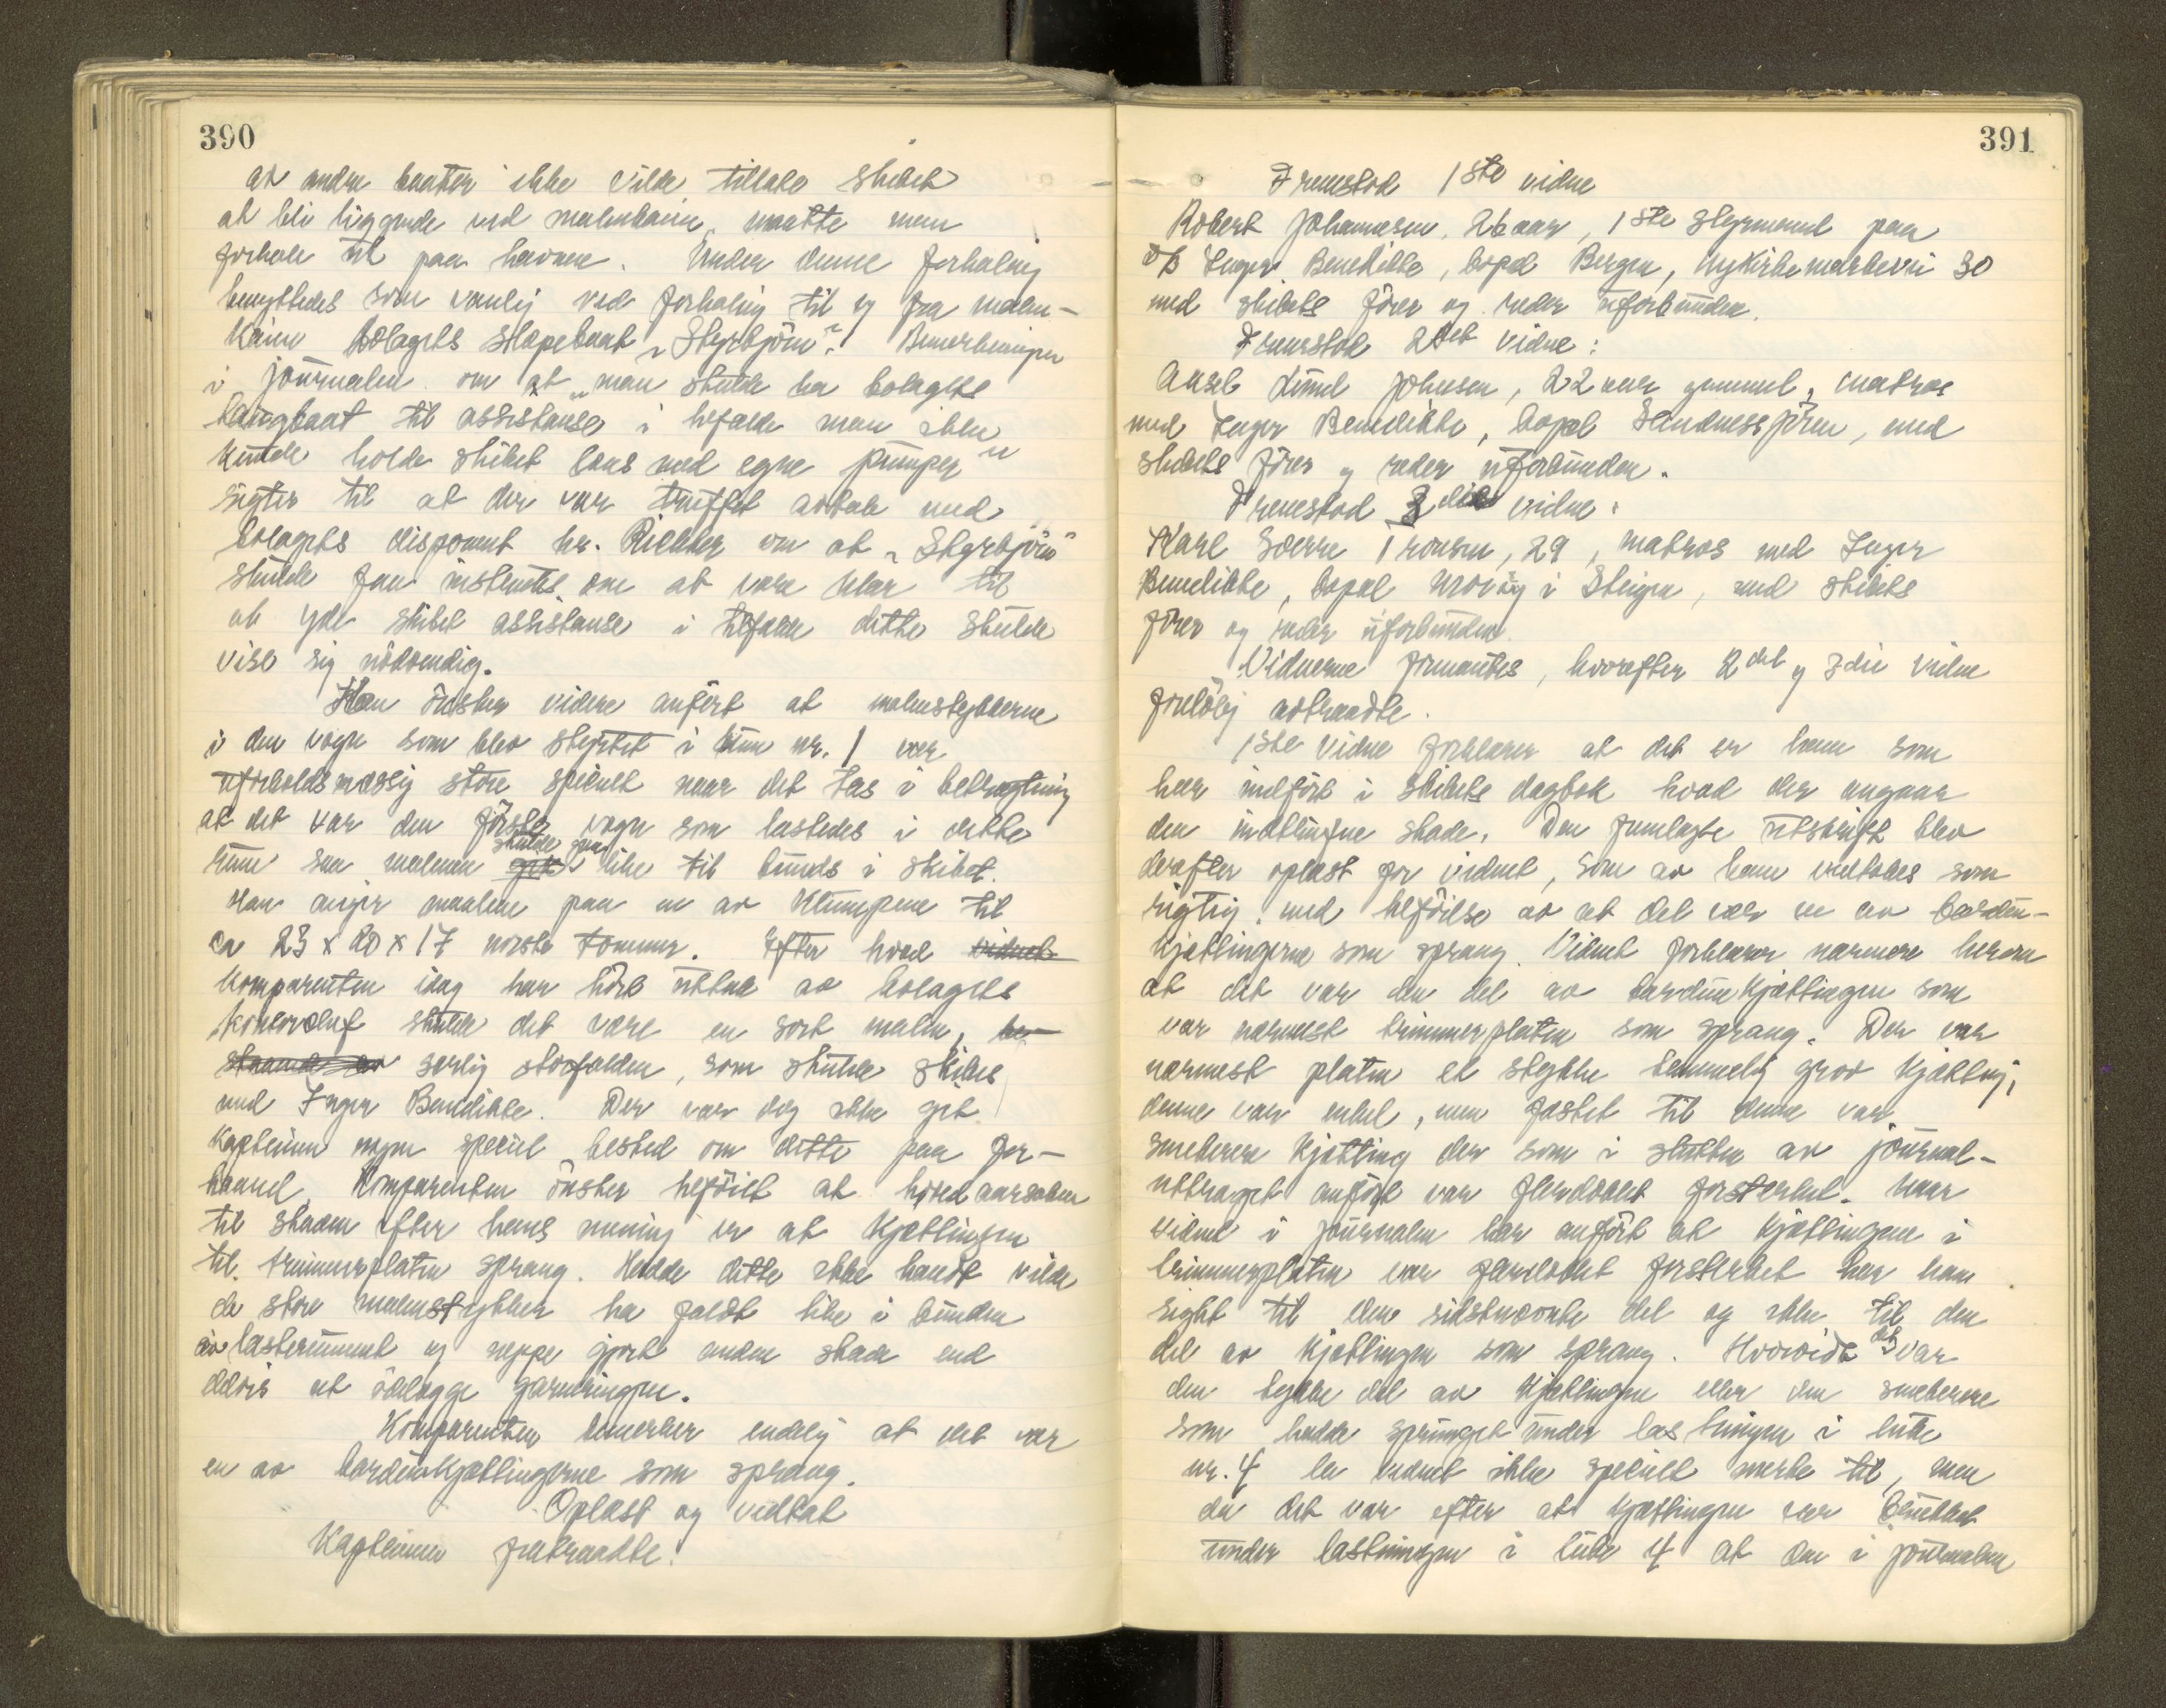 390
at andre baater ikke vilde tillate skibet
at bli liggende ved malmkaien, maatte man
forhale ut paa havnen. Under denne forhaling
benyttedes som vanlig ved forhaling til og fra malm-
kaien bolagets slæpebaat „Styrbjörn". Bemerkningen
i journalen om at „man skulde ha bolagets
taugbaat til assistanse i tilfælde man ikke
kunde holde skibet læns med egne pumper"
sigter til at der var truffet avtale med
bolagets disponent hr. Richter om at „Styrbjörn"
skulde faa instruks om at være klar til
at yde skibet assistanse i tilfælde dette skulde
vise sig nödvendig.
Han önsker videre anfört at malmstykkerne
i den vogn som blev styrtet i rum nr. 1 var
uforholdsmæssig store specielt naar det tas i betragtning
at det var den förste vogn som lastedes i dette
rum saa malmen skulde gaa like til bunds i skibet.
Han angir maalene paa en av klumpene til
ca 23 x 20 x 17 norske tommer. Efter hvad vidnet
komparenten idag har hört uttale av bolagets
kontorchef skulde det være en sort malm, be-
staaende av særlig storfalden, som skulde skibes
med Inger Benedikte. Der var dog ikke git
kapteinen nogen speciel besked om dette paa for-
haand. Komparenten önsker tilföiet at hovedaarsaken
til skaden efter hans mening er at kjættingen
til trimmerplaten sprang. Hadde dette ikke hændt vilde
de store malmstykker ha faldt like i bunden
av lasterummet og neppe gjort anden skade end
delvis at ödelægge garneringen.
Komparenten bemerker endelig at det var
en av bardunkjættingerne som sprang.
Oplæst og vedtat
Kapteinen fratraadte.
391
Fremstod 1ste vidne
Robert Johannesen, 26 aar, 1ste styrmand paa
D/S Inger Benedikte, bopæl Bergen, Nykirkemarkevei 30
med skibets förer og reder uforbunden.
Fremstod 2det vidne:
Aksel Lund Johnsen, 22 aar gammel, matros
med Inger Benedikte, bopæl Sandnessjöen, med
skibets förer og reder uforbunden.
Fremstod 3die vidne:
Karl Sverre Tronsen, 29, matros med Inger
Benedikte, bopæl i Steigen, med skibets
förer og reder uforbunden.
Vidnerne formantes, hvorefter 2det og 3die vidne
forelöbig avtraadte.
1ste vidne forklarer at det er ham som
har indfört i skibets dagbok hvad der angaar
den indtrufne skade. Den fremlagte utskrift blev
derefter oplæst for vidnet, som av ham vedtokes som
rigtig med tilföielse av at det var en av bardun-
kjættingerne som sprang. Vidnet forklarer nærmere herom
at det var den del av bardunkjættingen som
var nærmest trimmerplaten som sprang. Der var
nærmest platen et stykke temmelig grov kjætting,
denne var enkel, men fæstet til denne var
smekrere kjætting der som i slutten av journal-
utdraget anfört var flerdobbelt forsterket. Naar
vidnet i journalen har anfört at kjættingen i
trimmerplaten var flerdobbelt forsterket har han
sigtet til den sidstnævnte del og ikke til den
del av kjættingen som sprang. Hvorvidt det var
den tykke del av kjættingen eller den smekrere
som hadde sprunget under lastningen i luke
nr. 4 la vidnet ikke specielt merke til, men
da det var efter at kjættingen var brukket
under lastningen i luke 4 at den i journalen